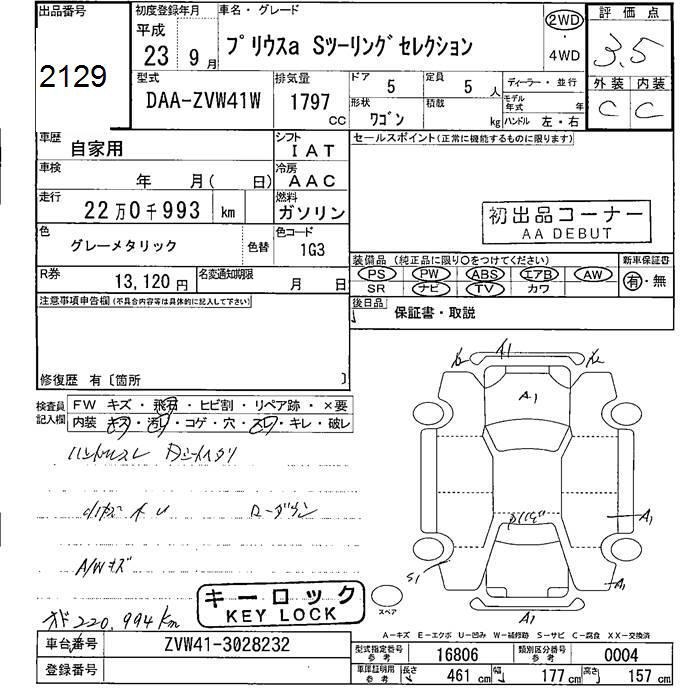 出品番号
2129
初度登録年月
平成
23 9月
車名・グレード
プリウスa Sツーリングセレクション
2WD
・
4WD
評価点
3.5
型式
DAA-ZVW41W
排気量
1797
CC
ドア 5
定員 5人
ディーラー・並行
形状
ワゴン
積載
kg
モデル年式 年
ハンドル 左・右
外装 内装
C C
車歴
自家用
シフト
IAT
セールスポイント(正常に機能するものに限ります)
車検
年 月( 日)
冷房
AAC
走行
22万0千993 km
燃料
ガソリン
初出品コーナー
AA DEBUT
色
グレーメタリック
色替
色コード
1G3
装備品 (純正品に限り○をつけてください)
新車保証書
PS PW ABS エアB AW
有・無
SR ナビ TV カワ
R券
13,120円
名変通知期限
月 日
後日品
保証書・取説
注意事項申告欄(不具合内容等は具体的に記入して下さい)
修復歴 有〔箇所 〕
検査員記入欄
FW キズ・飛石・ヒビ割・リペア跡・×要
内装 キズ・汚レ・コゲ・穴・スレ・キレ・破レ
ハンドルスレ
ローダウン
A/Wキズ
A1
A1
A1
A1
S1
A1
キーロック
KEY LOCK
スペア
オド220,994km
A-キズ E-エクボ U-凹み W-補修跡 S-サビ C-腐食 XX-交換済
車台番号
ZVW41-3028232
型式指定番号
参考
16806
類別区分番号
参考
0004
登録番号
車庫証明用
参考
長さ 461cm
幅 177cm
高さ 157cm